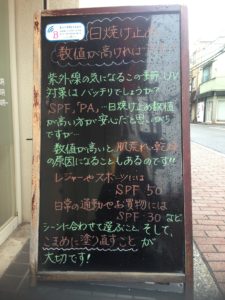 日焼け止め
数値が高ければ
紫外線の気になるこの季節、UV
対策はバッチリでしょうか?
"SPF、"PA、…日焼け止め数値
が高い方が安心だと思いがち
ですが…
数値が高いと肌荒れ・乾燥
の原因になることもあるのです!!
レジャーやスポーツには
SPF 50
日常の通勤やお買物には
SPF 30 など
シーンに合わせて選ぶこと。そして、
こまめに塗り直すこと が
大切です!